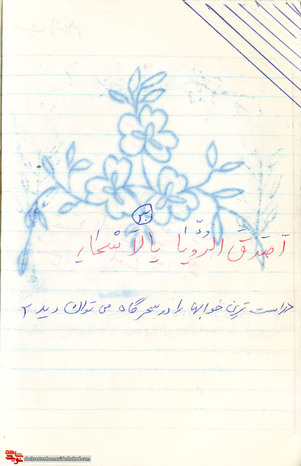 اَصْدَقُ الرُّؤیا بِالاَسْحارِ
راست ترین خوابها را در سحرگاه می توان دید